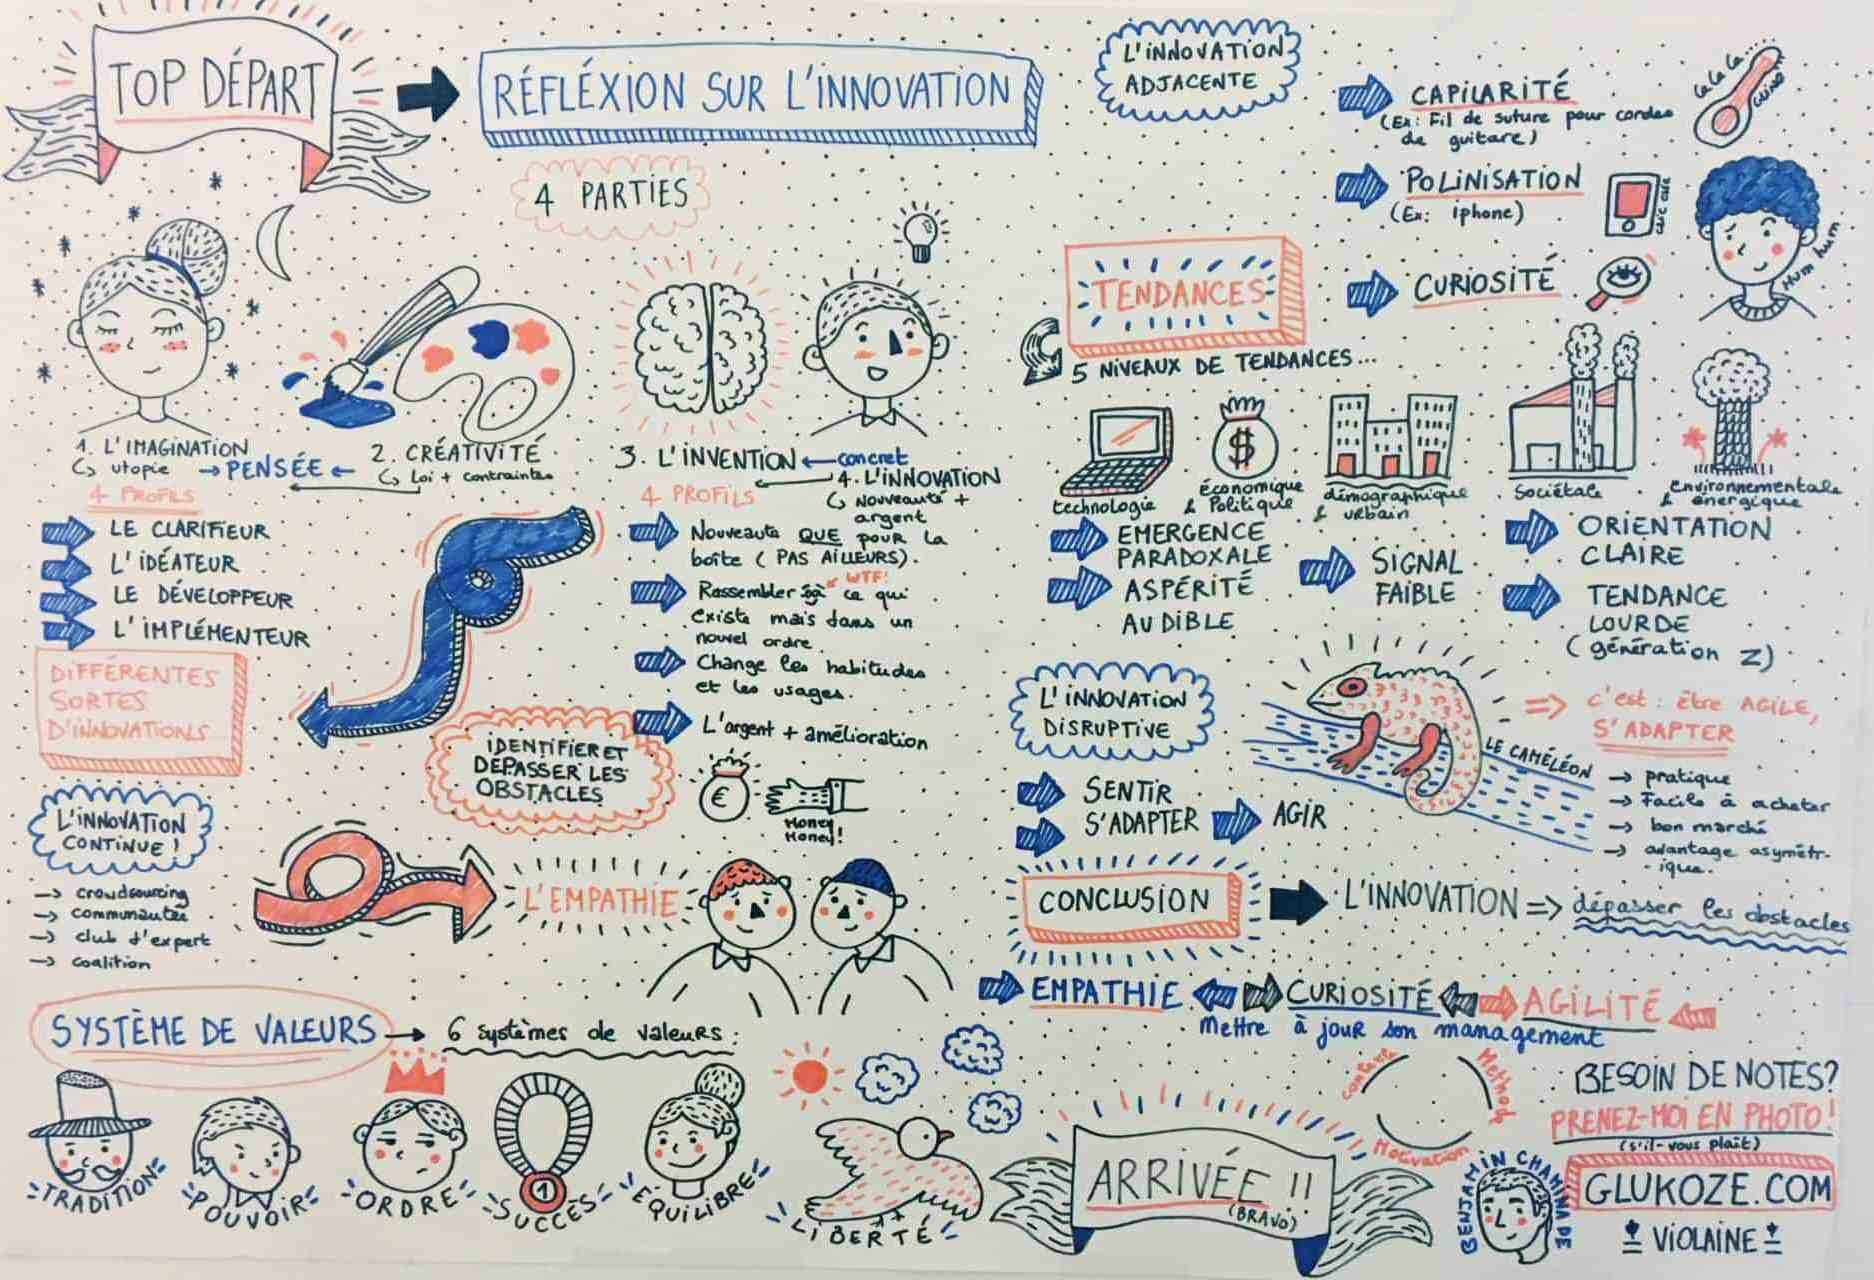 TOP DÉPART
RÉFLÉXION SUR L'INNOVATION
4 PARTIES
1. L'IMAGINATION
utopie
PENSÉE
2. CRÉATIVITÉ
Loi + contraintes
3. L'INVENTION
concret
4. L'INNOVATION
Nouveauté +
argent
4 PROFILS
LE CLARIFIEUR
L'IDÉATEUR
LE DÉVELOPPEUR
L'IMPLÉMENTEUR
4 PROFILS
Nouveauté QUE pour la
boîte (PAS AILLEURS).
WTF!
Rassembler ce qui
existe mais dans un
nouvel ordre.
Change les habitudes
et les usages.
L'argent + amélioration
Money
Honey!
DIFFÉRENTES
SORTES
D'INNOVATIONS
IDENTIFIER ET
DÉPASSER LES
OBSTACLES
L'INNOVATION
CONTINUE !
crowdsourcing
communautés
club d'expert
coalition
L'EMPATHIE
SYSTÈME DE VALEURS
6 systèmes de valeurs :
TRADITION
POUVOIR
ORDRE
1
SUCCÈS
ÉQUILIBRE
LIBERTÉ
L'INNOVATION
ADJACENTE
CAPILARITÉ
(Ex: Fil de suture pour cordes
de guitare)
La La La...
POLINISATION
(Ex: iphone)
CLIC CLIC
CURIOSITÉ
Hum hum
TENDANCES
5 NIVEAUX DE TENDANCES...
technologie
économique
& Politique
démographique
& urbain
sociétale
environnementale
& énergique
EMERGENCE
PARADOXALE
ASPÉRITÉ
AUDIBLE
SIGNAL
FAIBLE
ORIENTATION
CLAIRE
TENDANCE
LOURDE
(génération Z)
L'INNOVATION
DISRUPTIVE
SENTIR
S'ADAPTER
AGIR
LE CAMÉLÉON
c'est : être AGILE,
S'ADAPTER
pratique
Facile à acheter
bon marché
avantage asymétr-
-ique.
CONCLUSION
L'INNOVATION => dépasser les obstacles
EMPATHIE
CURIOSITÉ
AGILITÉ
Mettre à jour son management
contexte
Méthode
Motivation
ARRIVÉE !!
(BRAVO)
BESOIN DE NOTES?
PRENEZ-MOI EN PHOTO!
(s'il-vous plaît)
GLUKOZE.COM
VIOLAINE
BENJAMIN CHAMINADE